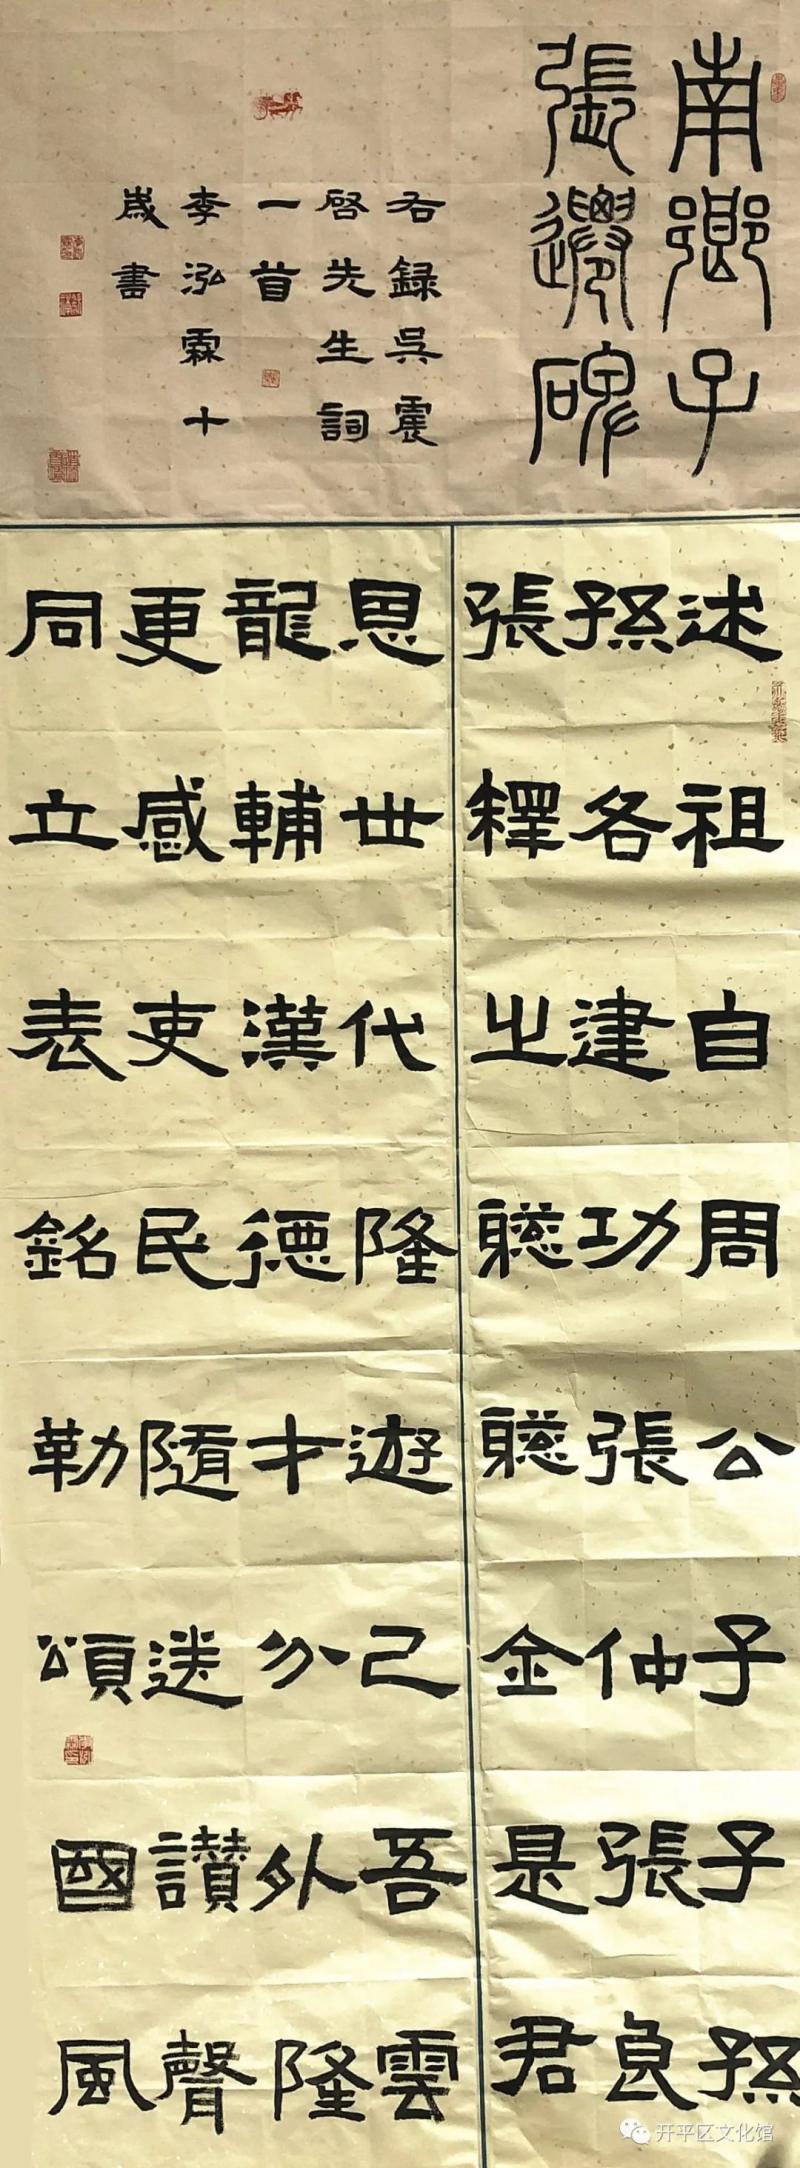 南鄉子
張遷碑
述祖自周公子子孫
孫各建功張仲張良
張釋之金是君
思世代隆遊己吾雲
龍輔漢德才分外隆
更感吏民隨送讚聲
同立表銘勒頌國風
右錄吳震
啓先生詞
一首
李泓霖十
歲書
开平区文化馆